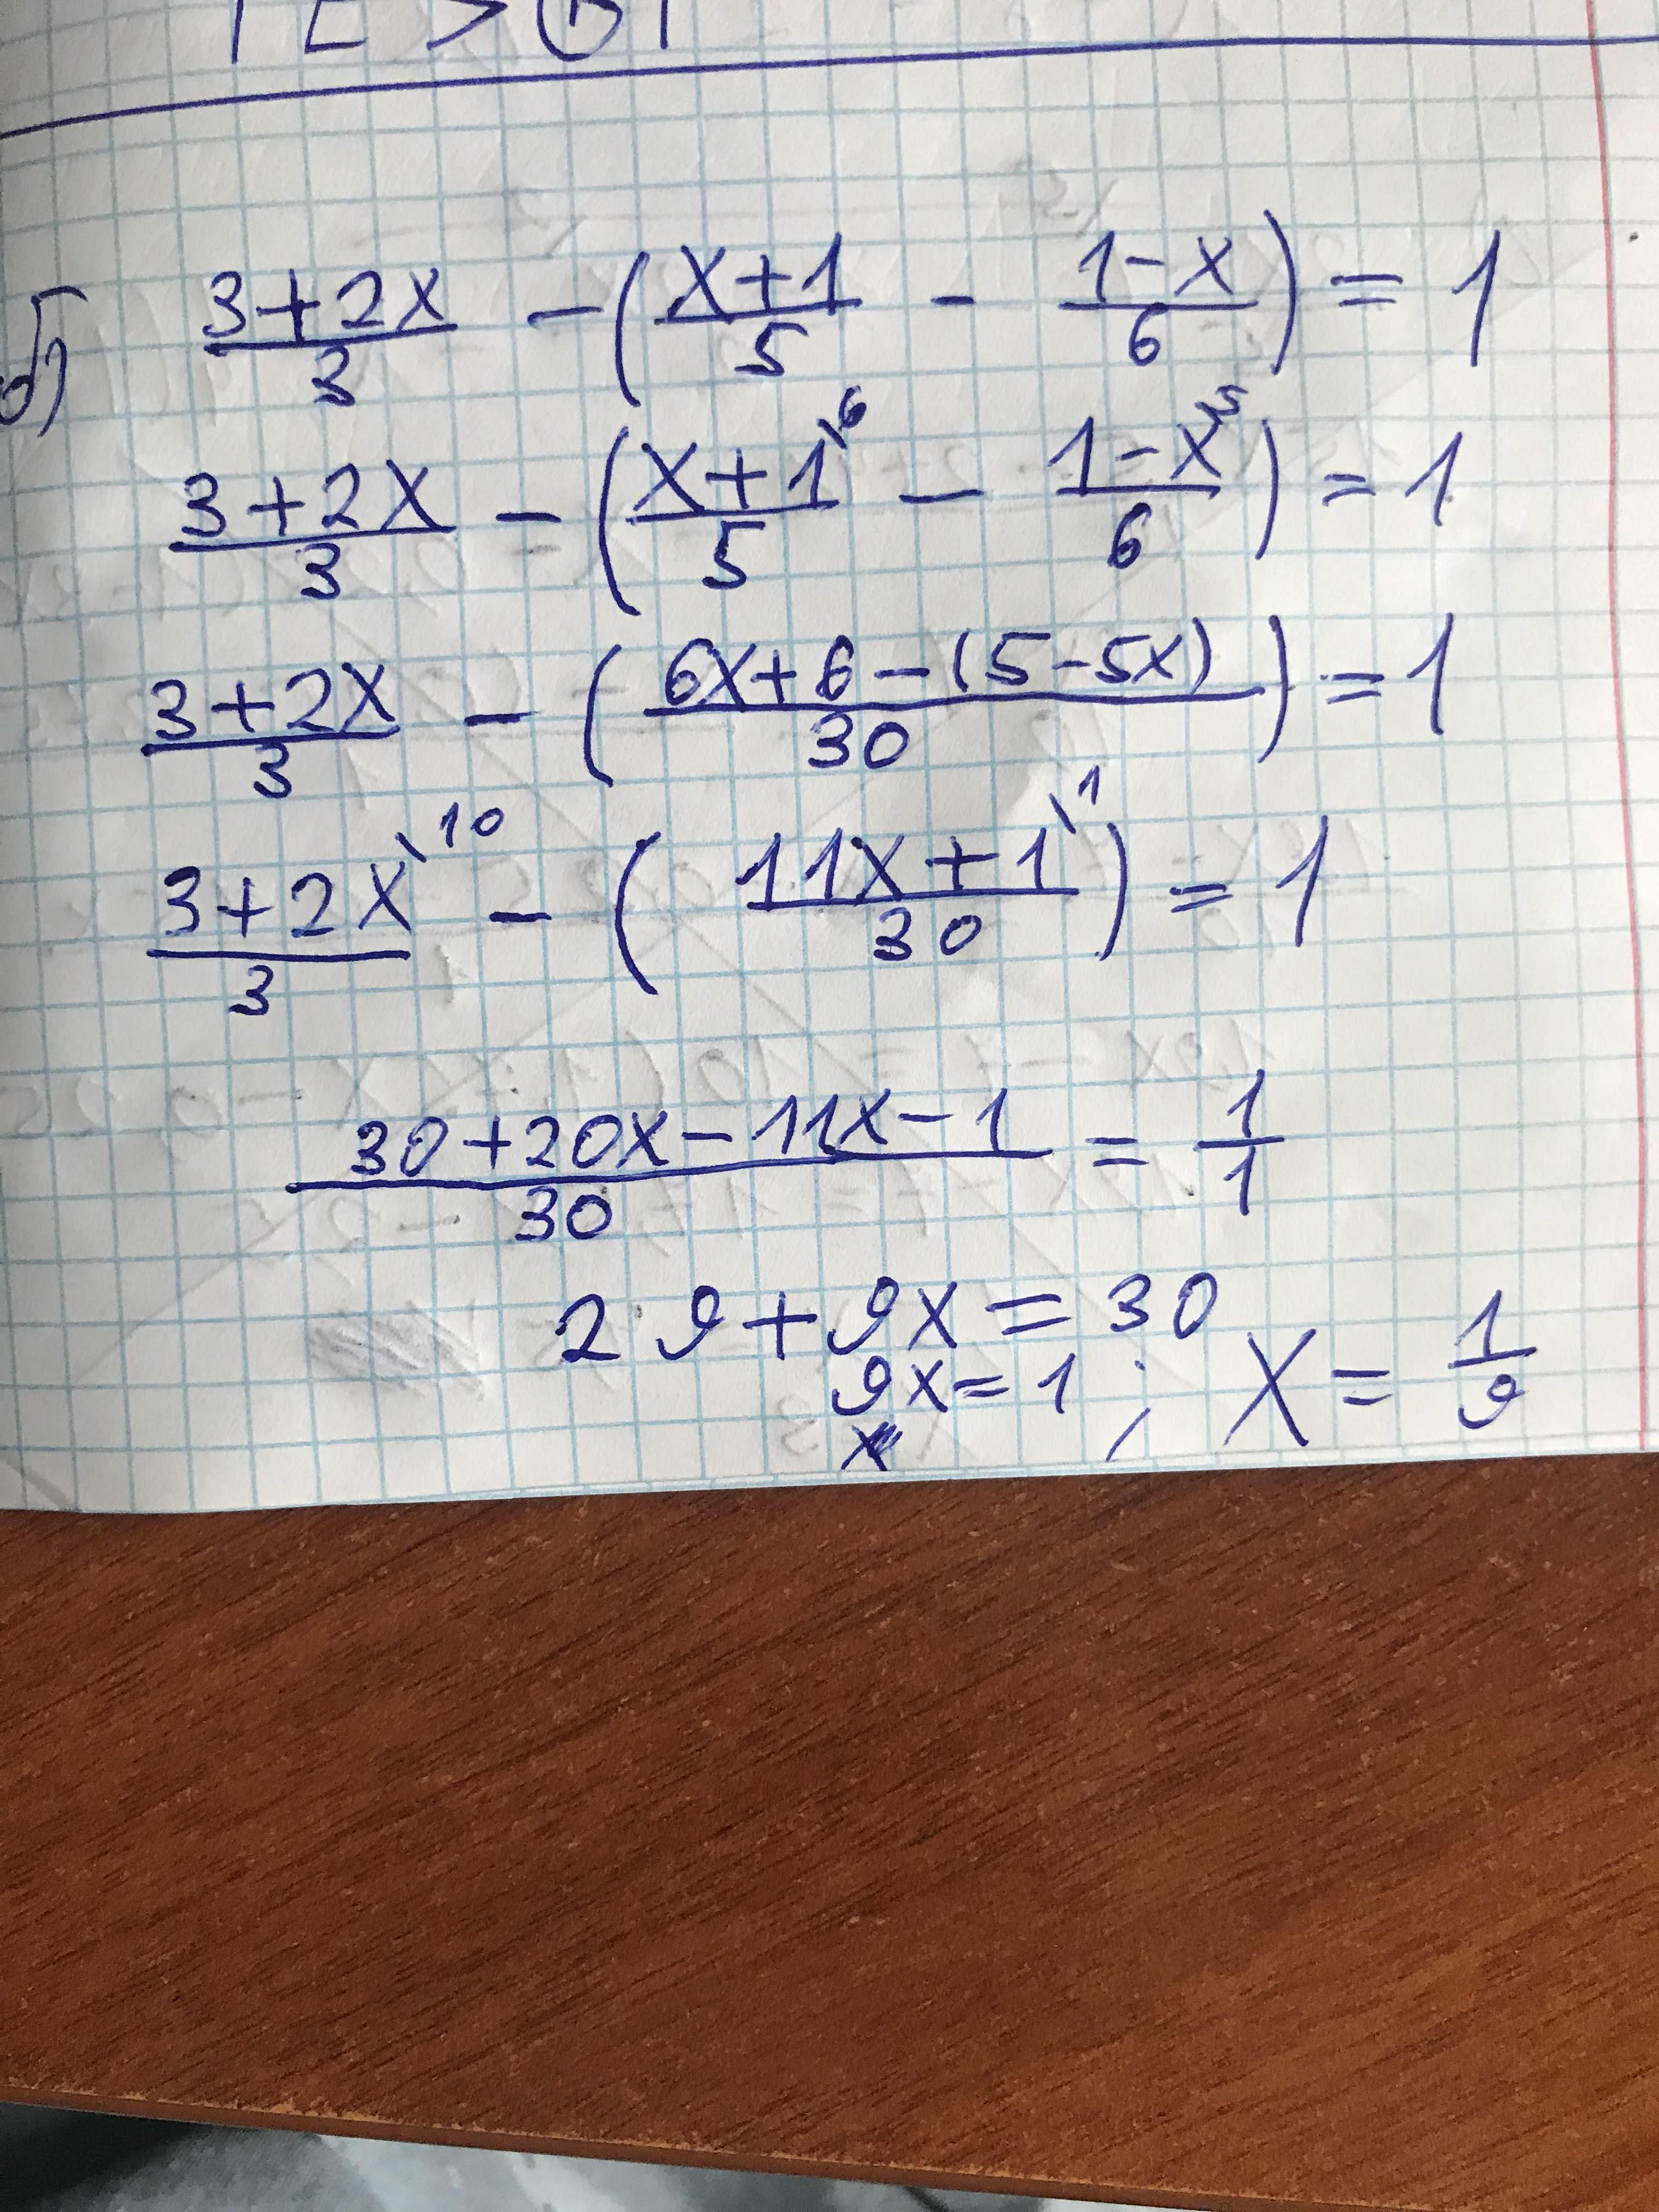 б) (3+2x)/3 - ((x+1)/5 - (1-x)/6) = 1
(3+2x)/3 - ((x+1)\6/5 - (1-x)\5/6) = 1
(3+2x)/3 - ((6x+6-(5-5x))/30) = 1
(3+2x)\10/3 - ((11x+1)\1/30) = 1
(30+20x-11x-1)/30 = 1/1
29+9x=30
9x=1 ; x = 1/9